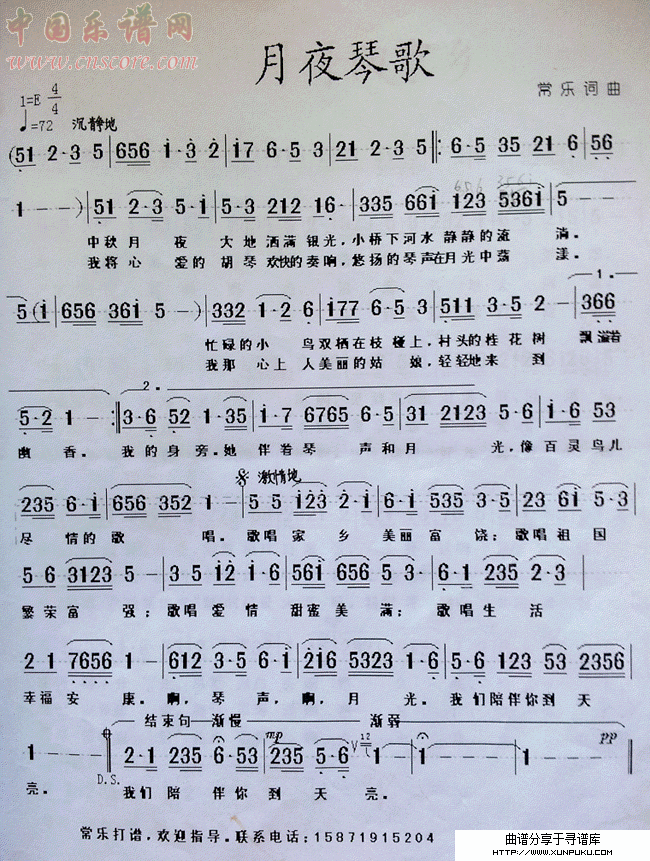 中国乐谱网
www.cnscore.com
月夜琴歌
常乐词曲
1=E 4/4
♩=72 沉静地
(51 2·3 5 | 656 1·3 2 | 176 6·5 3 | 21 2·3 5 ‖: 6·5 35 21 6 | 56
1 - - ) | 51 2·3 5·1 | 5·3 212 16· | 335 661 123 5361 | 5 -
中秋月 夜 大地洒满银光,小桥下河水静静的流 淌。
我将心 爱的胡琴欢快的奏响,悠扬的琴声在月光中荡 漾。
5 (1 | 656 361 5 - ) | 332 1·2 6 | 177 6·5 3·2 | 511 3·5 2 - | 366
1.
忙碌的小 鸟双栖在枝桠上,村头的桂花树 飘溢着
我那 心上人美丽的姑 娘,轻轻地来 到
2.
5·2 1 - :‖ 3·6 52 1·35 | 1·7 6765 6·5 | 31 2123 5·6 | 1·6 53
幽香。我的身旁。她 伴着琴 声和月 光,像百灵鸟儿
𝄋 激情地
235 6·1 | 656 352 | 1 - | 5 5 123 2·1 | 6·1 5·6 5·3 | 23 61 5·3
尽 情的歌 唱。歌唱家 乡 美丽富 饶;歌唱祖国
5·6 3123 | 5 - | 3 5 12 1·6 | 561 656 5·3 | 6·1 235 2·3
繁荣富 强;歌唱爱情 甜蜜美 满;歌唱生活
2 1 7656 | 1 - | 612 3·5 | 6·561 | 216 5323 1·6 | 5·6 123 53 2356
幸福安 康。啊,琴 声,啊,月 光。我们陪伴你到天
结束句—渐慢 渐弱
1 - | 2·1 235 6·53 | 235 5·6 | 1 - | 1 - | 1 - ‖
mp
V
12
pp
D.S.
亮。 我们陪伴你到天亮。
常乐打谱,欢迎指导。联系电话:15871915204
曲谱分享于寻谱库
HTTP://WWW.XUNPUKU.COM